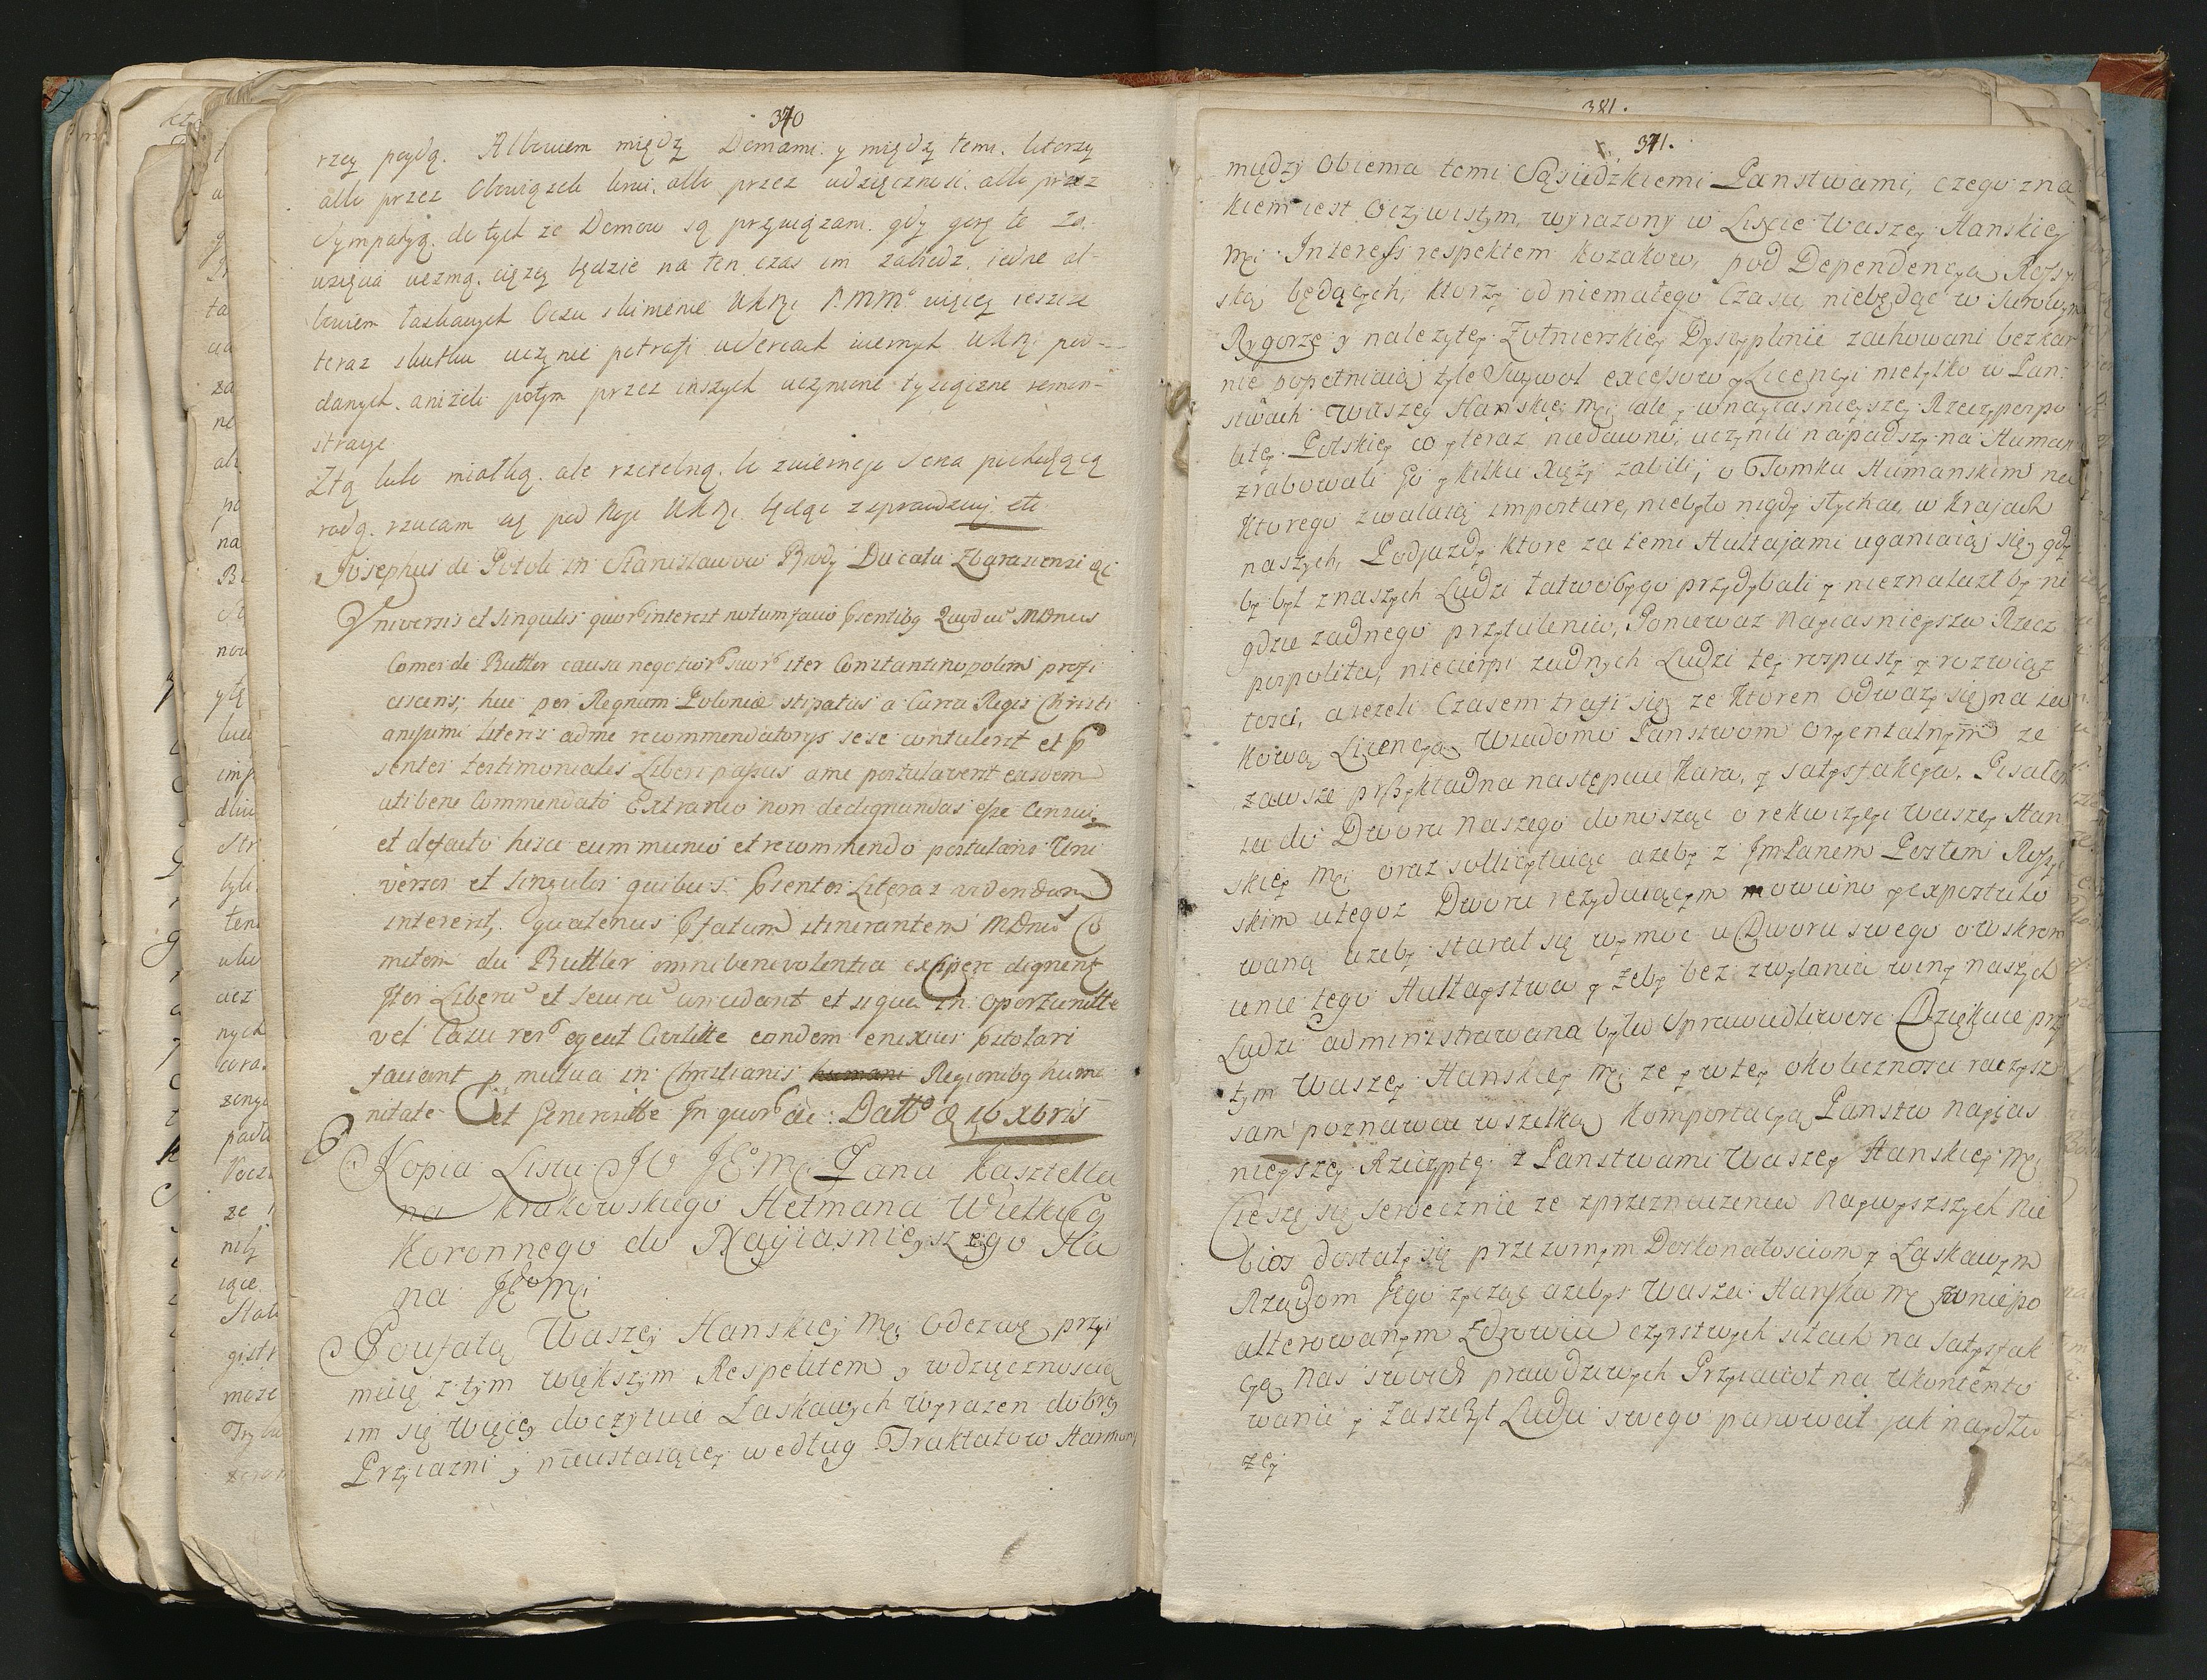 340
rzey poydą. Albowiem między Domami y między temi, ktorzy
albo przez Obowiązek krwi, albo przez wdzięczność, albo przez
Sympatyą do tych ze Domow są przywiązani, gdy gorę te za-
wzięcia wezmą, ciężey będzie na ten czas im zabiedz, iedno al-
bowiem łaskawych Oczu skinienie WKMci P. M. Mº więcey ieszcze
teraz skutku uczynić potrafi w sercach wiernych WKMci pod-
danych, aniżeli potym przez inszych uczynione tysiączne remon-
stracye.
Ztą lubo miałką, ale rzetelną, bo z wiernego serca pochodzącą
radą, rzucam się pod Nogi WKMci będąc z sprawiedliwy etc
Josephus de Potok in Stanisławow Brody Ducatu Zbarasiensi etc
Vniversis et singulis quorum interest notum facio psentibq Quod cu MDnus
Comes de Buttler causa negotior suor iter Constantinopolim profi
ciscens, huc per Regnum Poloniæ stipatus a Curia Regis Christi
anissimi literis ad me recommendatorys sese contulerit et p
sentes testimoniales Liberi passus a me postulaverit easdem
uti bene Commendato Extraneo non dedignandas esse censui,
et de facto hisce eum munio et recommendo postulans Uni
versos et singulos quibus psentes Literas videndum
intererit, quatenus pfatum itinerantem MDnu Co
mitem de Buttler omni benevolentia excipere dignent
Iter Liberu et securu concedant et si qua in oportunitte
vel Casu reru egeat Civilitte eondem enixius pstolari
faciant p mutua in Christianis humani Regionibq huma
nitate et Generositte In quor etc: Datt d 16 Xbris
Kopia Listu JO JEºMci Pana Kasztella
na Krakowskiego Hetmana Wielkieg
Koronnego do Nayiasnieyszego Ha
na JEºMci
Poufałą Waszey Hanskiey Mci Odezwę przyi
muię z tym większym Respektem y wdzięcznoscią
im się więcey doczytuię Łaskawych wyrazen dobrey
Przyiazni y nieustaiącey według Traktatow Harmony
381.
341.
między Obiema temi Sąsiedzkiemi Panstwami, czego zna
kiem iest Oczywistym, wyrazony w Liscie Waszey Hanskiey
Mci Interess respektem Kozakow, pod Dependencyą Rossy
ską będących, ktorzy od niemałego Czasu, niebędąc w surowym
Rygorze y nalezytey Zołnierskiey Dyscyplinie zachowani bezkar
nie popełniaią tyle Swywol excessow y Licencyi nietylko w Pan
stwach Waszey Hanskiey Mci ale y w nayiasnieyszey Rzeczyperpo
litey Polskiey co y teraz niedawno, uczynili napadszy na Human
zrabowali go y kilku Xięży zabili, o Tomku Humanskim na
Ktorego zwalaią imposture, niebyło nigdy słychac, w Krajach
naszych, Podjazdy ktore za temi Hultajami uganiaią się, gdy
by był z naszych Ludzi łatwoby go przydybali y nieznalazłby ni
gdzie zadnego przytulenia, Poniewaz Nayiasnieysza Rzecz
pospolita, niecierpi zadnych Ludzi tey rospusty y rozwiąz
łosci, a jezeli Czasem trafi się ze ktoren odwazy się na ta
kową Licencyą wiadomo Panstwom oryentalnym ze
zawsze przykładna następuie Kara, y satysfakcya. Pisałem
tu do Dworu Naszego donosząc o rekwizycyi Waszey Han
skiey Mci oraz sollicytuiąc azeby z JmPanem Posłem Rossy
skim u tegoz Dworu rezyduiącym mowiono y expostulo
wano azeby starał się wymoc u Dworu swego o uskrom
ienie tego Hultaystwa y żeby bez zwalania winy naszych
Ludzi administrowana była sprawiedliwosc Dziękuię przy
tym Waszey Hanskiey Mci ze y w tey okolicznosci raczysz
sam poznawac wszelką Komportacyą Panstw Nayias
nieyszey Rzeczyptey z Panstwami Waszey Hanskiey Mci
Cieszę się serdecznie ze z przeznaczenia Naywyszszych Nie
bios dostały się przezornym Doskonałosciom y Łaskawym
Rządom Jego zycząc azebys Wasza Hanska Mc w niepo
alterowanym Zdrowiu czyrstwych siłach na satysfak
cyą nas swoich prawdziwych Przyiacioł na ukontento
wanie y Zaszczyt Ludu swego panował jak naydłu
zey